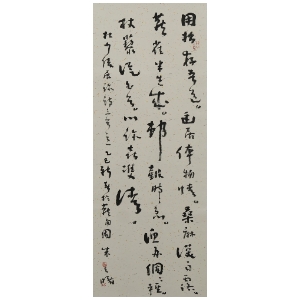 用拙存吾道幽居近物情桑麻深雨露
燕雀半生成村鼓時時急漁舟個個輕
杖藜從白首心跡喜雙清
杜少陵屏跡詩三首之一